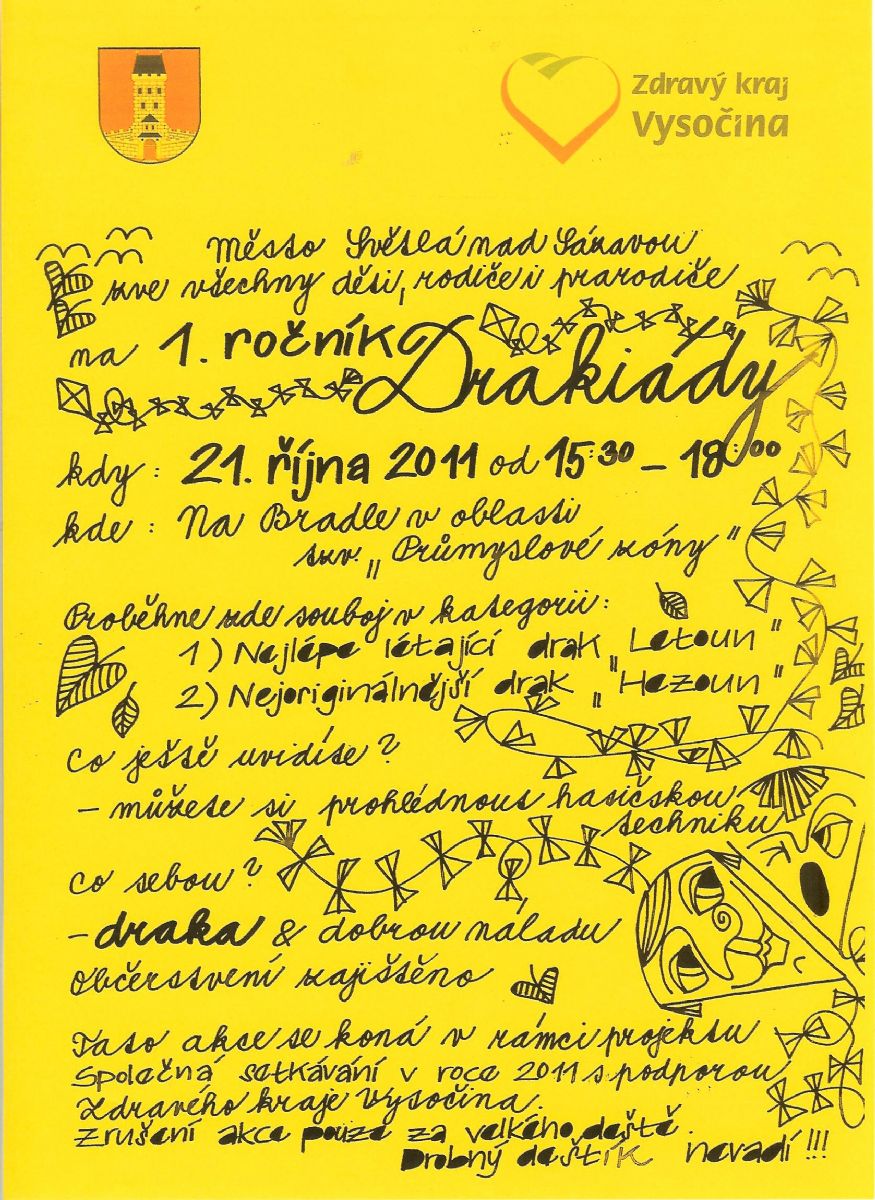 Zdravý kraj
Vysočina
Město Světlá nad Sázavou
zve všechny děti, rodiče i prarodiče
na 1. ročník Drakiády
kdy: 21. října 2011 od 15:30 – 18:00
kde: Na Bradle v oblasti
tzv. „Průmyslové zóny"
Proběhne zde souboj v kategorii:
1) Nejlépe létající drak „Letoun"
2) Nejoriginálnější drak „Hezoun"
Co ještě uvidíte?
– můžete si prohlédnout hasičskou
techniku
Co sebou?
– draka & dobrou náladu
Občerstvení zajištěno
Tato akce se koná v rámci projektu
Společná setkávání v roce 2011 s podporou
Zdravého kraje Vysočina.
Zrušení akce pouze za velkého deště.
Drobný deštík nevadí!!!